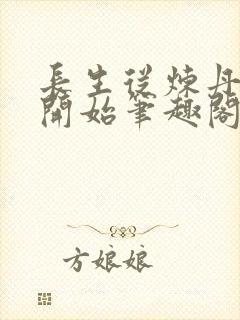 長生從煉丹
開始筆趣閣
方娘娘